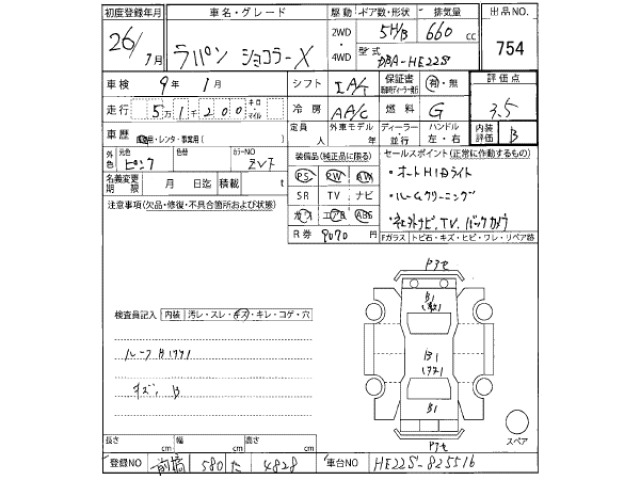 初度登録年月 車名・グレード 駆動 ドア数・形状 排気量 出品NO.
26/7月 ラパン ショコラーX 2WD・4WD 5H/B 660cc 754
型式 DBA-HE22S
車検 9年 1月 シフト IA/T 保証書 有・無 評価点
走行 5万1千200 キロ・マイル 冷房 AA/C 燃料 G 3.5
車歴 自家用・レンタ・事業用( ) 定員 人 外車モデル 年 ディーラー・並行 ハンドル 左・右 内装評価 B
外色 元色 ピンク 色替 カラーNO ZVT 装備品(純正品に限る) セールスポイント(正常に作動するもの)
名義変更期限 月 日迄 積載 t PS PW AW ・オートHIDライト
注意事項(欠品・修復・不具合箇所および状態) SR TV ナビ ・ルームクリーニング
カワ エアB ABS ・社外ナビ,TV,バックカメラ
R券 9070円 Fガラス トビ石・キズ・ヒビ・ワレ・リペア跡
ドアセ
B1
検査員記入 内装 汚レ・スレ・キズ・キレ・コゲ・穴
B1
ルーフ B
キズ、B
B1
スペア
長さ cm 幅 cm 高さ cm
登録NO 前橋 580 た 4828 車台NO HE22S-825516